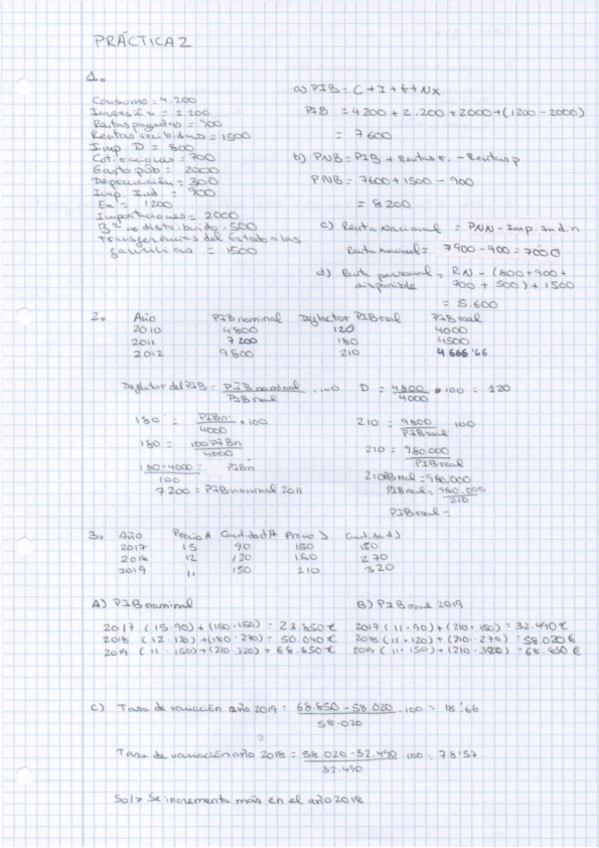 PRÁCTICA 2
1.
Consumo = 4.200
Inversión = 2.200
Rentas pagadas = 900
Rentas recibidas = 1500
Imp. D = 800
Cotizaciones = 700
Gasto púb = 2000
Depreciación = 300
Imp. Ind. = 900
Ex = 1200
Importaciones = 2000
Bº no distribuido = 500
Transferencias del Estado a las
familias = 1500
a) PIB = C + I + G + NX
PIB = 4200 + 2.200 + 2000 + (1200 - 2000)
= 7600
b) PNB = PIB + Rentas r. - Rentas p
PNB = 7600 + 1500 - 900
= 8200
c) Renta Nacional = PNN - Imp. ind. n
Renta nacional = 7900 - 900 = 7000
d) Renta personal = RN - (800 + 900 +
disponible 700 + 500) + 1500
= 5.600
2. Año PIB nominal Deflactor PIB real PIB real
2010 4800 120 4000
2011 7200 180 4500
2012 9800 210 4666'66
Deflactor del PIB = PIB nominal / PIB real · 100 D = 4800 / 4000 · 100 = 120
180 = PIBn / 4000 · 100
180 = 100 PIBn / 4000
180 · 4000 / 100 = PIBn
7200 = PIB nominal 2011
210 = 9800 / PIB real · 100
210 = 980.000 / PIB real
210 PIB real = 980.000
PIB real = 980.000 / 210
PIB real =
3. Año Precio A Cantidad A Precio J Cantidad J
2017 15 90 150 150
2018 12 120 180 270
2019 11 150 210 320
A) PIB nominal
2017 (15·90) + (150·150) = 23.850€
2018 (12·120) + (180·270) = 50.040€
2019 (11·150) + (210·320) = 68.850€
B) PIB real 2019
2017 (11·90) + (210·150) = 32.490€
2018 (11·120) + (210·270) = 58.020€
2019 (11·150) + (210·320) = 68.850€
c) Tasa de variación año 2019 = 68.850 - 58.020 / 58.020 · 100 = 18'66
Tasa de variación año 2018 = 58.020 - 32.490 / 32.490 · 100 = 78'57
Sol> Se incrementa más en el año 2018